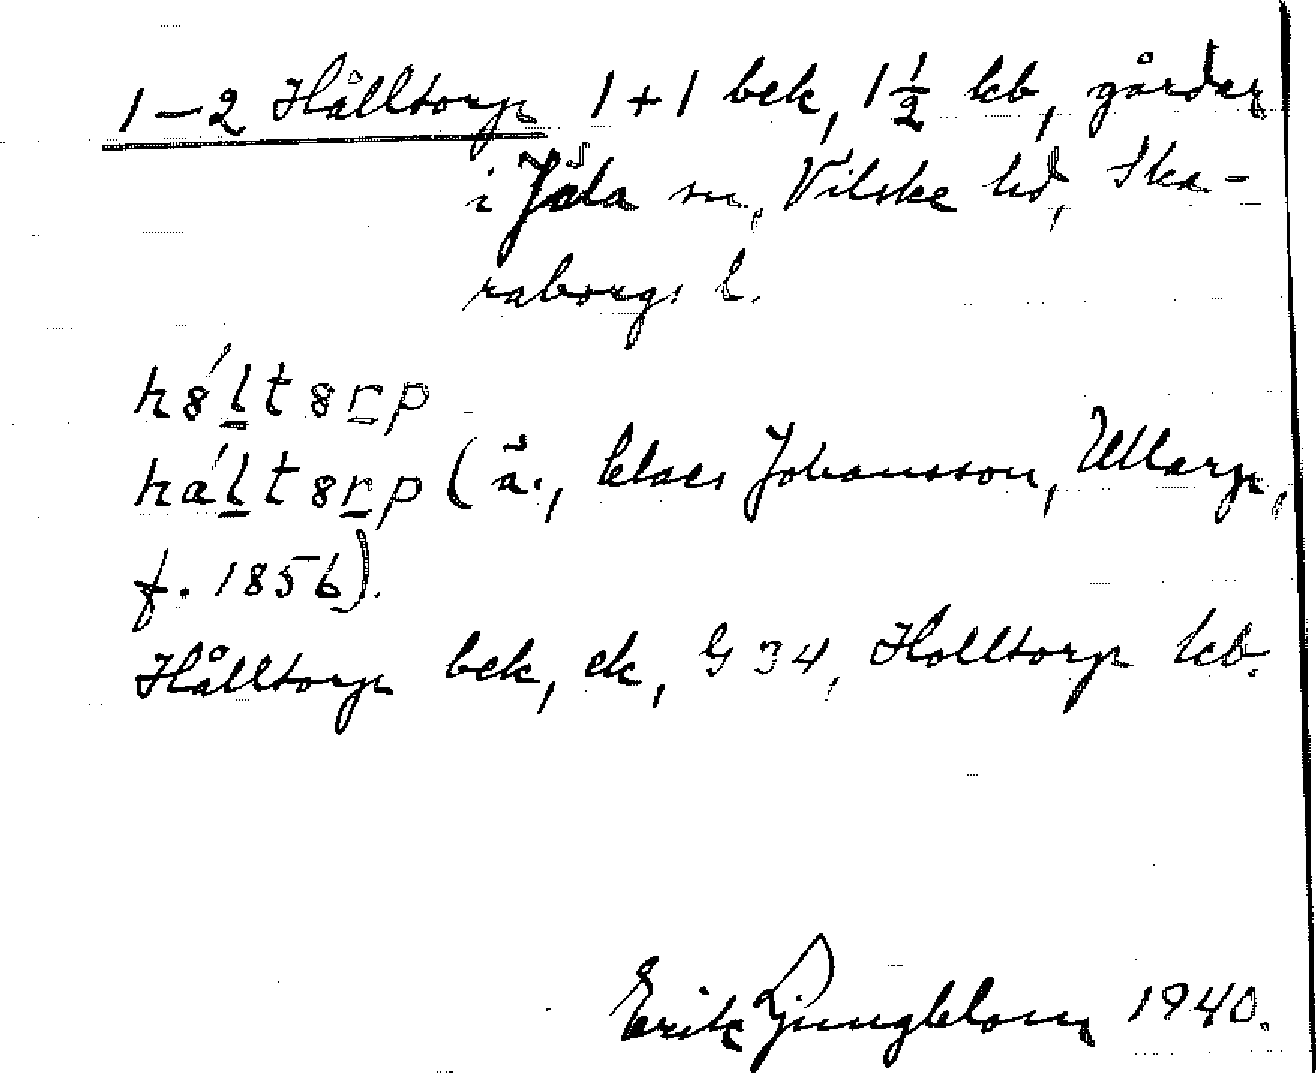 1-2 Hålltorp 1+1 bek, 1½ kb, gårdar
i Jäla sn, Vilske hd, Ska-
raborgs l.
hó̤ltsrp
háltsrp (ä., Claes Johansson, Ullarp,
f. 1856).
Hålltorp bek, ek, G 34, Holltorp kb.
Erik Ljungblom 1940.